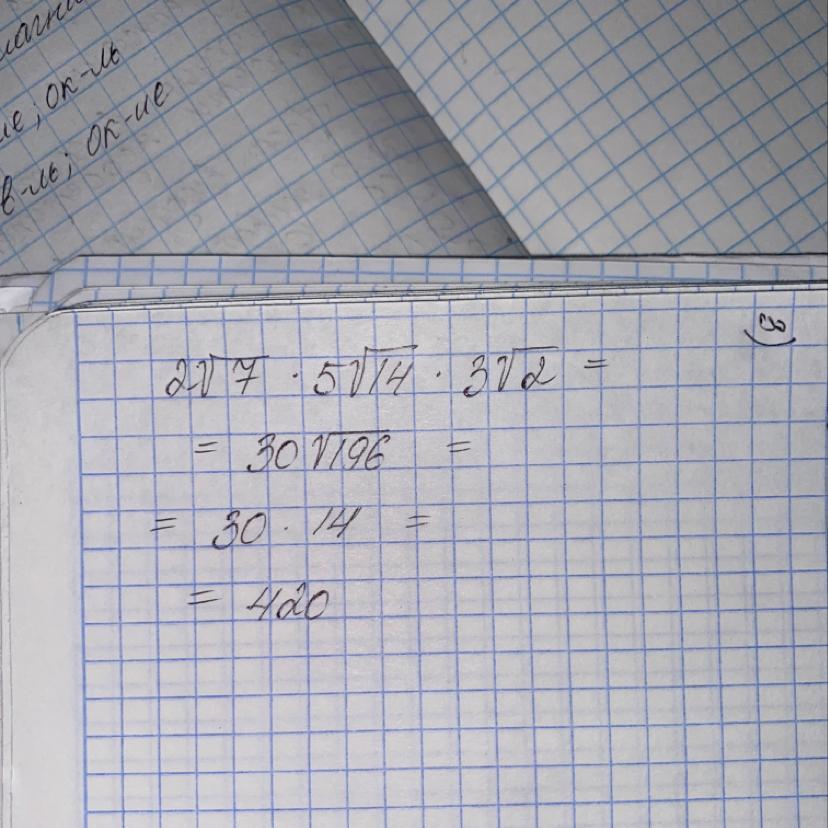 ие; ок-ль
в-ль; ок-ие
3)
2√7 · 5√14 · 3√2 =
= 30√196 =
= 30 · 14 =
= 420